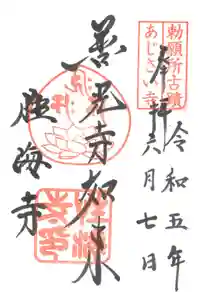 勅願所古蹟
あじさい寺
奉拝
令和五年
六月七日
善光寺如来
性海寺